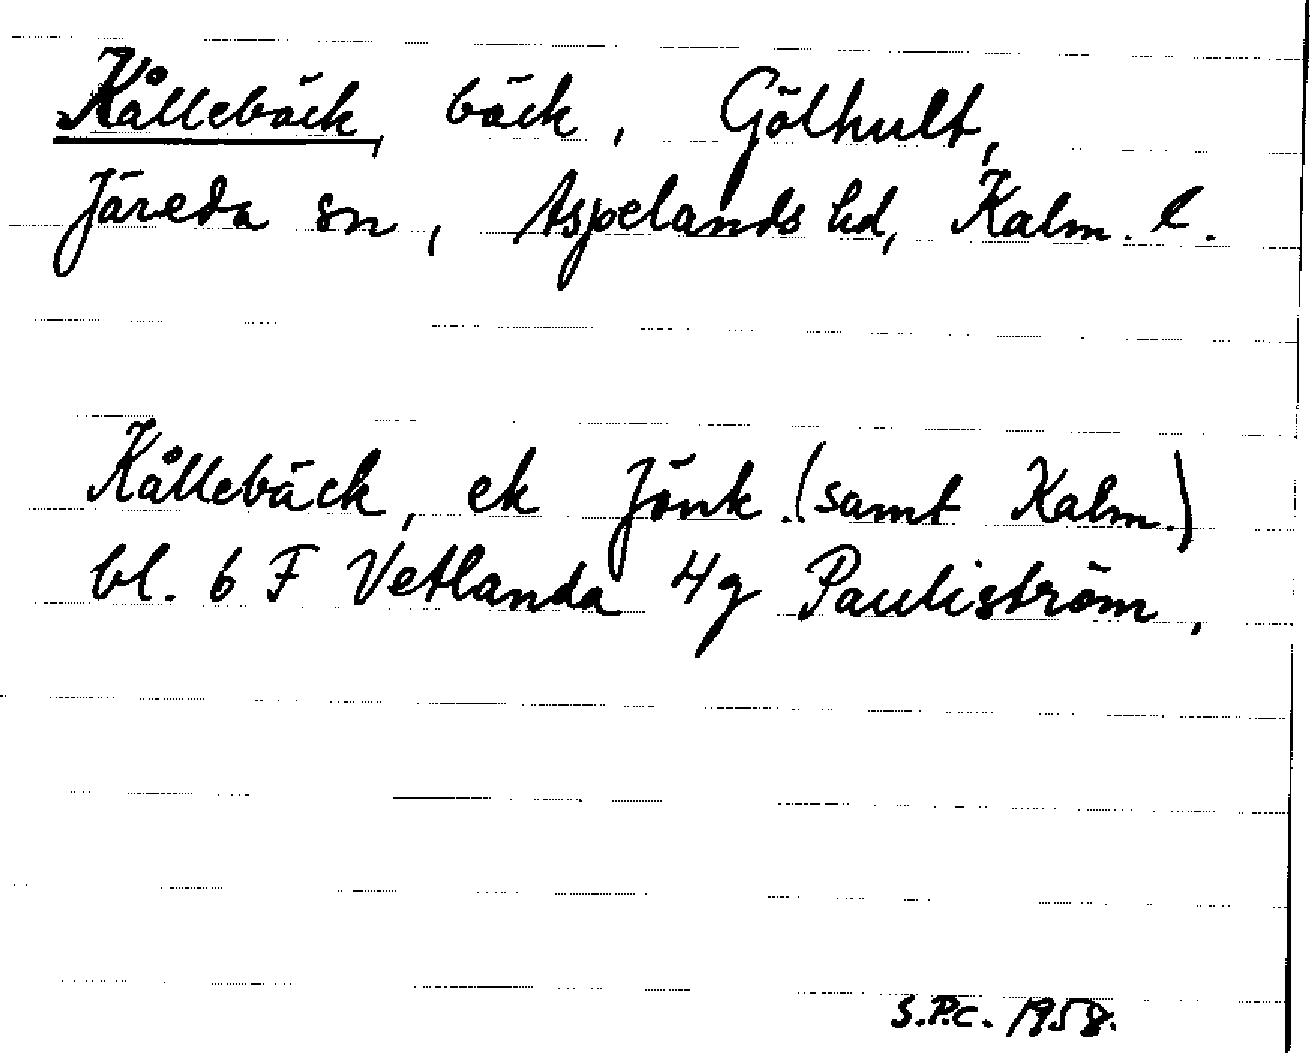 Kållebäck, bäck, Gölhult,
Järeda sn, Aspelands hd, Kalm. l.
Kållebäck, ek Jönk. (samt Kalm.)
bl. 6 F Vetlanda 4g Pauliström,
S.P.C. 1958.